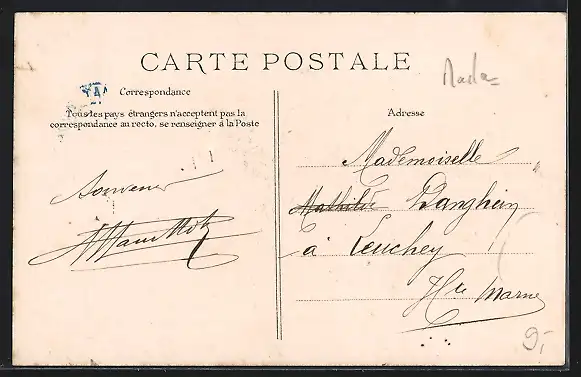 CARTE POSTALE
Correspondance
Tous les pays étrangers n'acceptent pas la
correspondance au recto, se renseigner à la Poste
Souvenir
Adresse
Mademoiselle
Mathilde
à Leuchey
Hte Marne
9.-